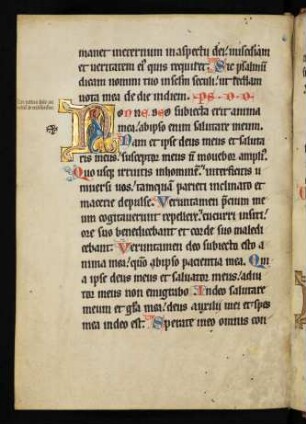 manet ineternum inaspectu dei. misc̄diam
et ueritatem ei᾿ quis requiret. Sic psalmū
dicam nomini tuo insc̄lm seculi. ut reddam
uota mea de die indiem.
Nonne deo subiecta erit anima
mea. abipso enim salutare meum.
Nam et ipse deus meus et saluta
ris meus. susceptor meus n̄ mouebor ampl᾿.
Quo usq; irruitis inhominē. interficitis u
niuersi uos. tamquā parieti inclinato et
macerie depulse. Veruntamen p̄cium me
um cogitauerunt repellere. cucurri insiti.
ore suo benedicebant et corde suo maledi
cebant. Veruntamen deo subiecta esto a
nima mea. qm̄ abipso pacientia mea. Qui
a ipse deus meus et saluator meus. adiu
tor meus non emigrabo. Indeo salutare
meum et gl̄a mea. deus auxilii mei et spes
mea indeo est. Sperate ineo omnis con